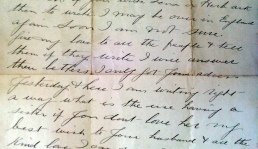 then I write I may be over in England
again Soon I am not Sure.
Give my love to all the people & tell
them if they write I will answer
their letters I only got your address
yesterday & here I am writing right
a way what is the use having a
sister if you dont love her my
best wish to your husband & all the
kind love I